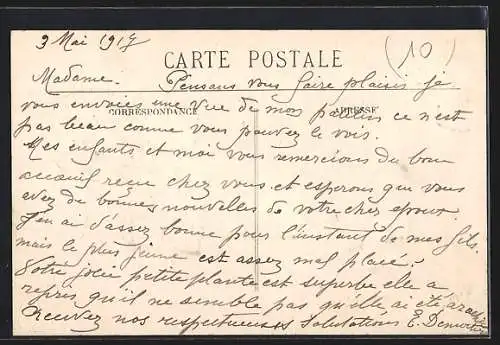 3 Mai 1917
(10)
CARTE POSTALE
Madame. Pensans vous faire plaisir je
vous envoies une vue de mon ce n'est
CORRESPONDANCE
ADRESSE
pas beau comme vous pouvez le vois.
Mes enfants et moi vous remercions du bon
accueuil reçue chez vous et esperons que vous
avez de bonnes nouvelles de votre cher epoux.
J'en ai d'assez bonne pour l'instant de mes fils.
mais le plus jeune est assez mal placé.
Votre jolie petite plante est superbe elle a
repris qu'il ne semble pas qu'elle ai été
Recevez nos respectueuses salutations E.